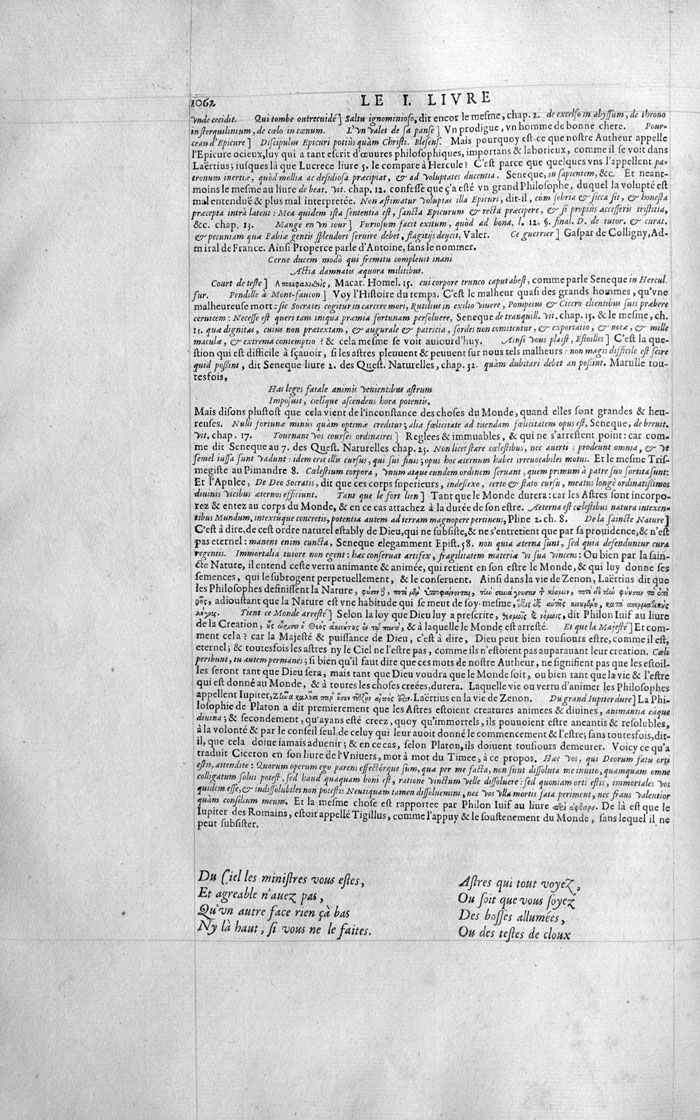 1062 LE I. LIVRE
vnde cecidit. Qui tombe outrecuidé] Saltu ignominioso, dit encor le mesme, chap. 2. de excelso in abyssum, de throno
in sterquilinium, de cœlo in cœnum. L'vn valet de sa panse] Vn prodigue, vn homme de bonne chere. Pour-
ceau d'Epicure] Discipulus Epicuri potius quàm Christi. Blesens. Mais pourquoy est-ce que nostre Autheur appelle
l'Epicure ocieux, luy qui a tant escrit d'œuures philosophiques, importans & laborieux, comme il se voit dans
Laërtius; iusques là que Lucrece liure 5. le compare à Hercule? C'est parce que quelques vns l'appellent pa-
tronum inertiæ, quòd mollia ac desidiosa præcipiat, & ad voluptates ducentia. Seneque, in sapientem, &c. Et neant-
moins le mesme au liure de beat. vit. chap. 12. confesse que ç'a esté vn grand Philosophe, duquel la volupté est
mal entenduë & plus mal interpretée. Non æstimatur voluptas illa Epicuri, dit-il, cùm sobria & sicca sit, & honesta
præcepta intrà latent: Mea quidem ista sententia est, sancta Epicurum & recta præcipere, & si propiùs accesseris tristitia,
&c. chap. 13. Mange en vn iour] Furiosum facit exitum, quòd ad bona, l. 12. §. final. D. de tutor. & curat.
& pecuniam quæ Fabiæ gentis splendori seruire debet, flagitijs desjcit, Valer. Ce guerrier] Gaspar de Colligny, Ad-
miral de France. Ainsi Properce parle d'Antoine, sans le nommer.
Cerne ducem modò qui fremitu compleuit inani
Actia damnatis æquora militibus.
Court de teste] Macar. Homel. 15. cui corpore trunco caput abest, comme parle Seneque in Hercul.
fur. Pendille à Mont-faucon] Voy l'Histoire du temps. C'est le malheur quasi des grands hommes, qu'vne
malheureuse mort: sic Socrates cogitur in carcere mori, Rutilius in exilio viuere, Pompeius & Cicero clientibus suis præbere
ceruicem: Necesse est queri tam iniqua præmia fortunam persoluere, Seneque de tranquill. vit. chap. 15. & le mesme, ch.
11. quæ dignitas, cuius non prætextam, & augurale & patricia, sordes non comitentur, & exportatio, & notæ, & mille
maculæ, & extrema contemptio? & cela mesme se voit auiourd'huy. Ainsi vous plaist, Estoilles] C'est la que-
stion qui est difficile à sçauoir, si les astres pleuuent & peuuent sur nous tels malheurs: non magis difficile est scire
quid possint, dit Seneque liure 2. des Quest. Naturelles, chap. 32. quàm dubitari debet an possint. Marulle tou-
tesfois,
Has leges fatale animis venientibus astrum
Imposuit, cœlique ascendens hora potentis.
Mais disons plustost que cela vient de l'inconstance des choses du Monde, quand elles sont grandes & heu-
reuses. Nulli fortunæ minùs quàm optimæ creditur; alia fœlicitate ad tuendam fœlicitatem opus est, Seneque, de breuit.
vit. chap. 17. Tournant vos courses ordinaires] Reglees & immuables, & qui ne s'arrestent point: car com-
me dit Seneque au 7. des Quest. Naturelles chap. 25. Non licet stare cælestibus, nec auerti: prodeunt omnia, & vt
semel iussa sunt vadunt: idem erit illi cursus, qui sui finis; opus hoc æternum habet irreuocabiles motus. Et le mesme Tris-
megiste au Pimandre 8. Cælestium corpora, vnum atque eundem ordinem seruant, quem primum à patre suo sortita sunt:
Et l'Apulee, De Deo Socratis, dit que ces corps superieurs, indeflexo, certo & stato cursu, meatus longè ordinatissimos
diuinis vicibus æternos efficiunt. Tant que le fort lien] Tant que le Monde durera: car les Astres sont incorpo-
rez & entez au corps du Monde, & en ce cas attachez à la durée de son estre. Æterna est cælestibus natura intexen-
tibus Mundum, intextúque concretis, potentia autem ad terram magnopere pertinens, Pline 2. ch. 8. De la saincte Nature]
C'est à dire, de cest ordre naturel estably de Dieu, qui ne subsiste, & ne s'entretient que par sa prouidence, & n'est
pas eternel: manent enim cuncta, Seneque elegamment Epist. 58. non quia æterna sunt, sed quia defenduntur cura
regentis. Immortalia tutore non egent: hæc conseruat artifex, fragilitatem materiæ vi sua vincens: Ou bien par la sain-
cte Nature, il entend ceste vertu animante & animée, qui retient en son estre le Monde, & qui luy donne ses
semences, qui le subrogent perpetuellement, & le conseruent. Ainsi dans la vie de Zenon, Laërtius dit que
les Philosophes definissent la Nature,
adioustant que la Nature est vne habitude qui se meut de soy-mesme,
Tient ce Monde arresté] Selon la loy que Dieu luy a prescrite, dit Philon Iuif au liure
de la Creation, & à laquelle le Monde est arresté. Et que la Majesté] Et com-
ment cela? car la Majesté & puissance de Dieu, c'est à dire, Dieu peut bien tousiours estre, comme il est,
eternel; & toutesfois les astres ny le Ciel ne l'estre pas, comme ils n'estoient pas auparauant leur creation. Cœli
peribunt, tu autem permanes; si bien qu'il faut dire que ces mots de nostre Autheur, ne signifient pas que les estoil-
les seront tant que Dieu sera, mais tant que Dieu voudra que le Monde soit, ou bien tant que la vie & l'estre
qui est donné au Monde, & à toutes les choses creées, durera. Laquelle vie ou vertu d'animer les Philosophes
appellent Iupiter, Laërtius en la vie de Zenon. Du grand Iupiter dure] La Phi-
losophie de Platon a dit premierement que les Astres estoient creatures animees & diuines, animantia eáque
diuina; & secondement, qu'ayans esté creez, quoy qu'immortels, ils pouuoient estre aneantis & resolubles,
à la volonté & par le conseil seul de celuy qui leur auoit donné le commencement & l'estre; sans toutesfois, dit-
il, que cela doiue iamais aduenir; & en ce cas, selon Platon, ils doiuent tousiours demeurer. Voicy ce qu'a
traduit Ciceron en son liure de l'Vniuers, mot à mot du Timee, à ce propos, Hæc vos, qui Deorum satu orti
estis, attendite: Quorum operum ego parens effectórque sum, quæ per me facta, non sunt dissoluta me inuito, quamquam omne
colligatum solui potest, sed haud quaquam boni est, ratione vinctum velle dissoluere: sed quoniam orti estis, immortales vos
quidem esse, & indissolubiles non potestis: Neutiquam tamen dissoluemini, nec vos vlla mortis fata periment, nec fraus valentior
quàm consilium meum. Et la mesme chose est rapportee par Philon Iuif au liure De là est que le
Iupiter des Romains, estoit appellé Tigillus, comme l'appuy & le soustenement du Monde, sans lequel il ne
peut subsister.
Du Ciel les ministres vous estes,
Et agreable n'auez pas,
Qu'vn autre face rien çà bas
Ny là haut, si vous ne le faites.
Astres qui tout voyez,
Ou soit que vous soyez
Des bosses allumées,
Ou des testes de cloux